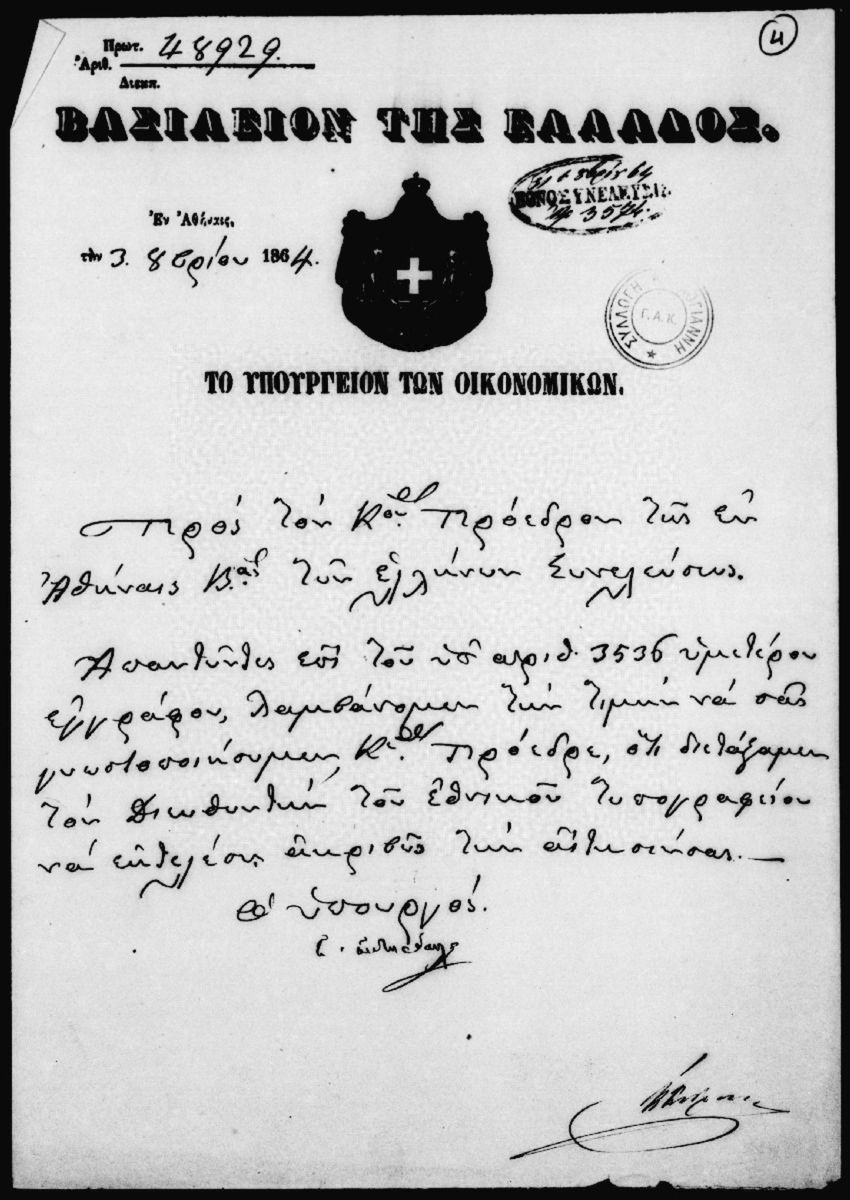 4
Πρωτ. 48929.
Ἀριθ.
Διεκπ.
ΒΑΣΙΛΕΙΟΝ ΤΗΣ ΕΛΛΑΔΟΣ.
ΕΘΝΟΣΥΝΕΛΕΥΣΙΣ
3574.
Ἐν Ἀθήναις,
τὴν 3. 8βρίου 1864.
ΣΥΛΛΟΓΗ
Γ.Α.Κ.
ΤΟ ΥΠΟΥΡΓΕΙΟΝ ΤΩΝ ΟΙΚΟΝΟΜΙΚΩΝ.
Πρὸς τὸν Κον. Πρόεδρον τῆς ἐν
Ἀθήναις Βας. τῶν Ἑλλήνων Συνελεύσεως.
Ἀπαντῶντες ἐπὶ τοῦ ὑπ' ἀριθ. 3536 ὑμετέρου
ἐγγράφου, λαμβάνομεν τὴν τιμὴν νὰ σᾶς
γνωστοποιήσωμεν, Κε. Πρόεδρε, ὅτι διετάξαμεν
τὸν Διευθυντὴν τοῦ Ἐθνικοῦ Τυπογραφείου
νὰ ἐκτελέσῃ ἀκριβῶς τὴν αἴτησιν σας.
Ὁ ὑπουργός.